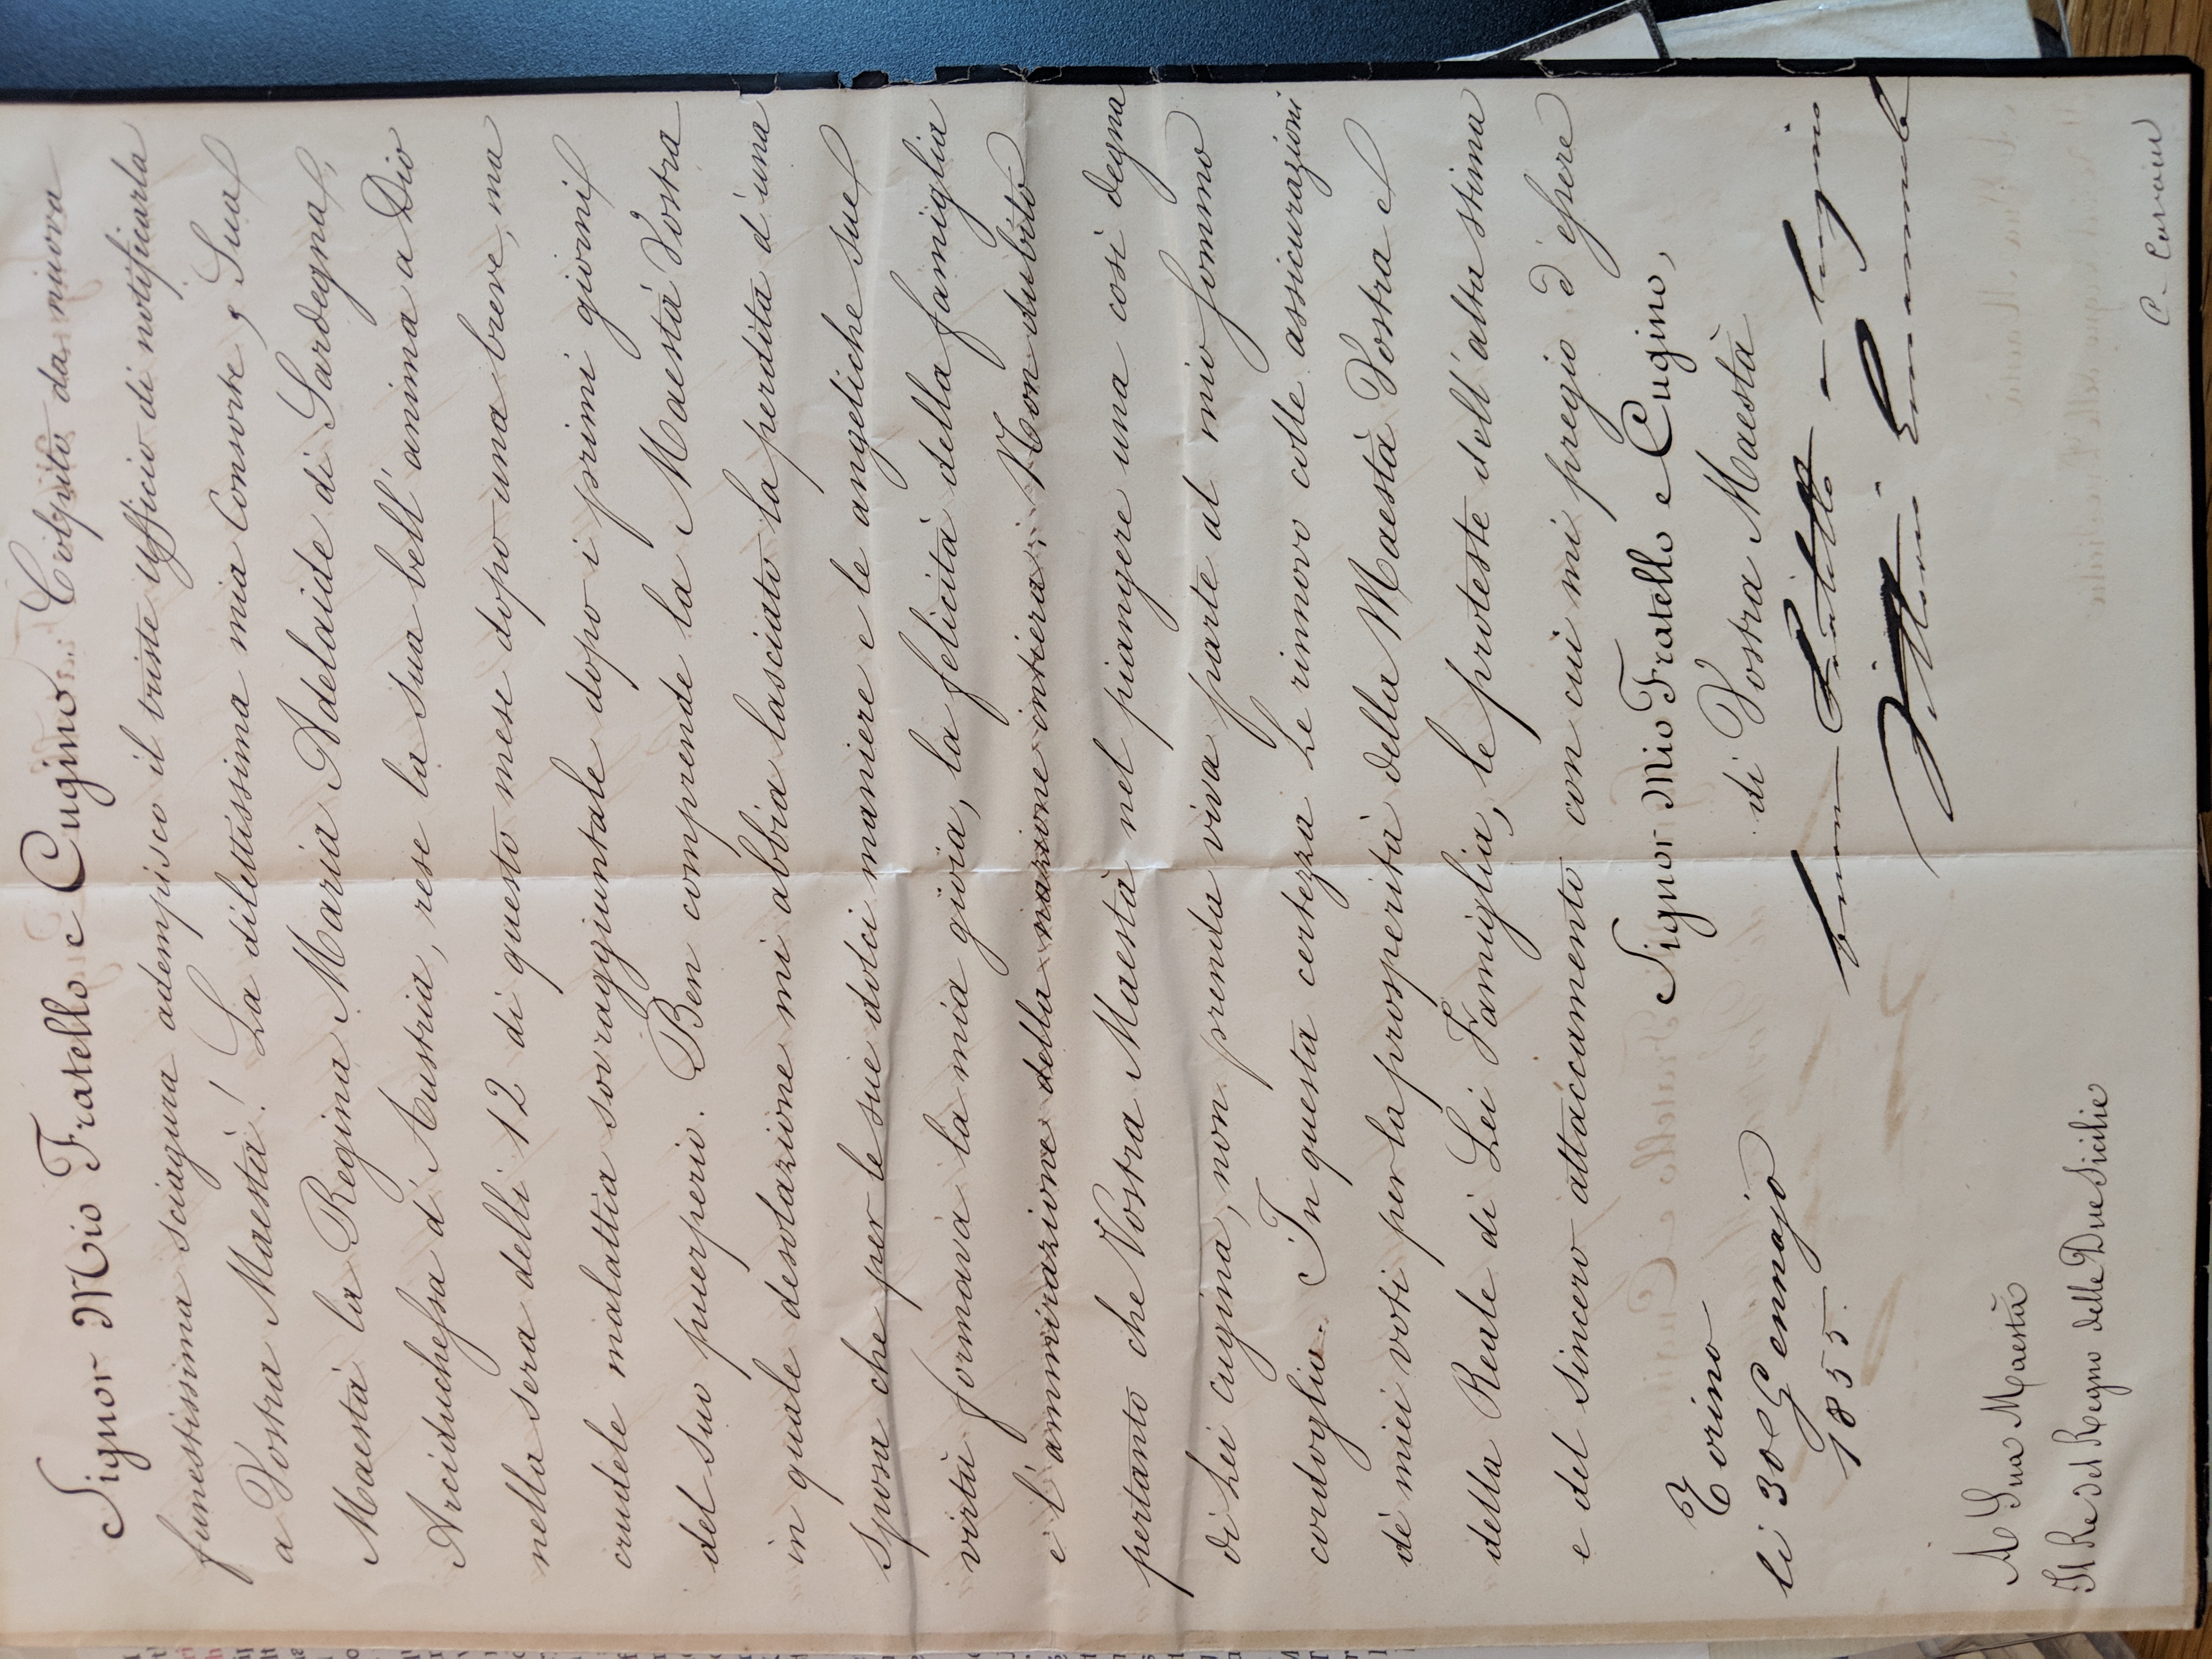 Signor Mio Fratello e Cugino. Colpito da nuova
funestissima sciagura adempisco il triste Officio di notificarla
a Vostra Maestà! La dilettissima mia Consorte, Sua
Maestà la Regina Maria Adelaide di Sardegna,
Arciduchessa d'Austria, rese la sua bell'anima a Dio
nella sera delli 12 di questo mese dopo una breve, ma
crudele malattia sovraggiuntale dopo i primi giorni
del suo puerperio. Ben comprende la Maestà Vostra
in quale desolazione mi abbia lasciato la perdita d'una
sposa che per le sue dolci maniere e le angeliche sue
virtù formava la mia gioia, la felicità della famiglia
e l'ammirazione della nazione intiera. Non dubito
pertanto che Vostra Maestà nel piangere una così degna
di Lei cugina, non prenda viva parte al mio sommo
cordoglio. In questa certezza Le rinnovo colle assicurazioni
de' miei voti per la prosperità della Maestà Vostra e
della Reale di Lei Famiglia, le proteste dell'alta stima
e del sincero attaccamento con cui mi pregio d'essere
Signor Mio Fratello e Cugino,
di Vostra Maestà
Torino
li 30 Gennajo
1855.
buon Fratello e Cugino
Vittorio Emanuele
A Sua Maestà
Il Re del Regno delle Due Sicilie
C. Cavour